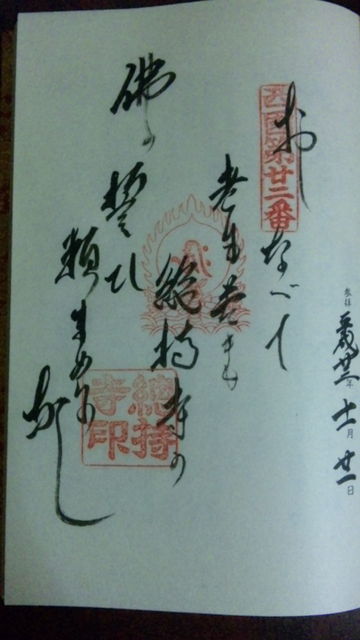 参拝 平成 年 十一月 廿一日
西国第廿二番
おしなべて
老も若きも
總持寺の
佛の誓ひ
頼まぬ
なし
總持寺印